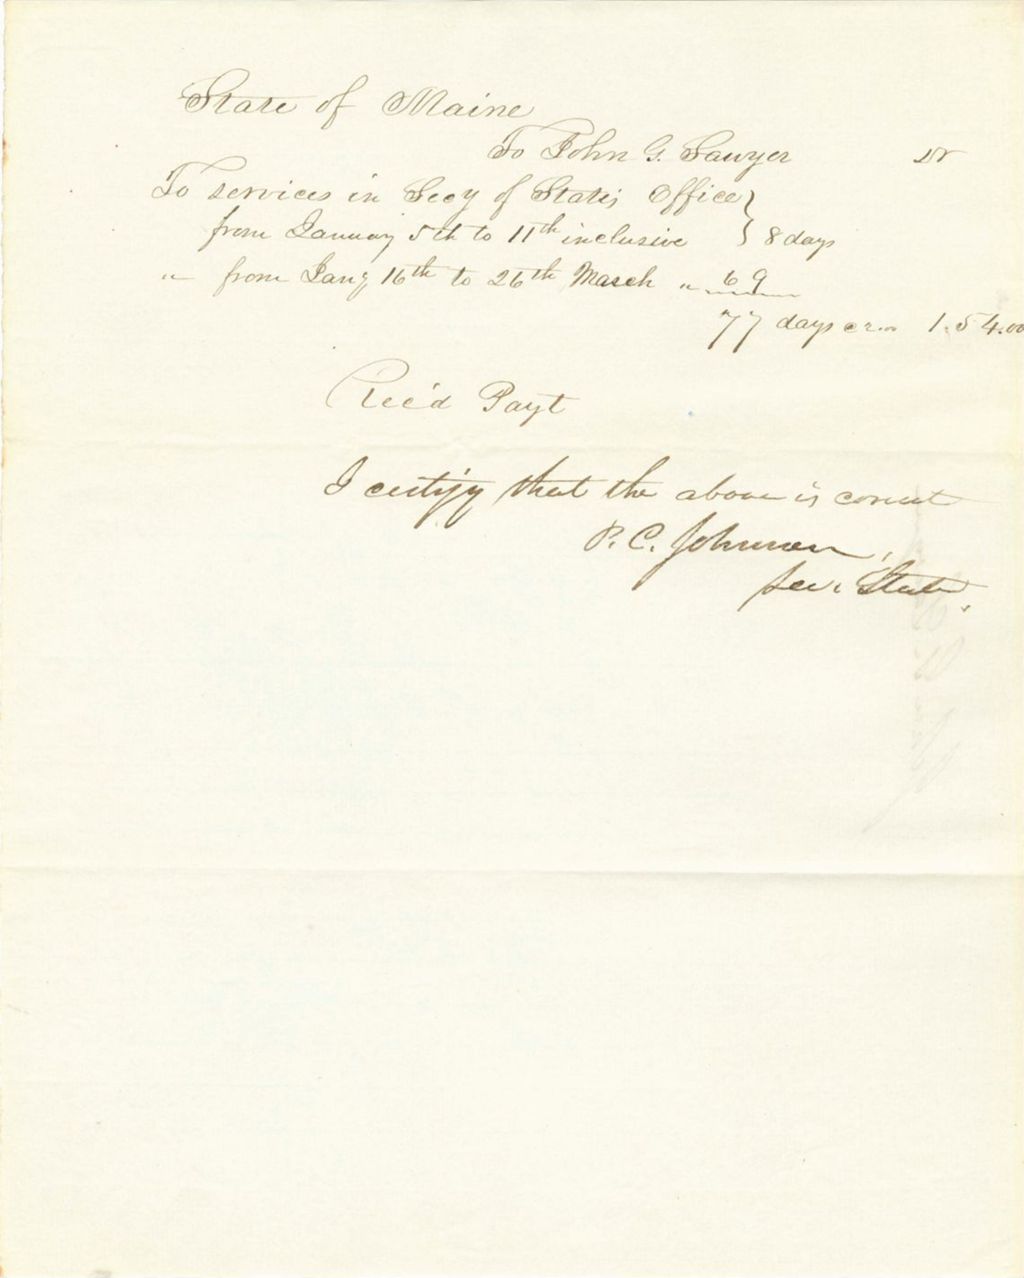 State of Maine
To John G. Sawyer Dr
To services in Secy of State's Office
from January 5th to 11th inclusive } 8 days
" from Jany 16th to 26th March " 69
77 days 154.00
Rec'd Payt
I certify that the above is correct
P. C. Johnson,
Sec. State.